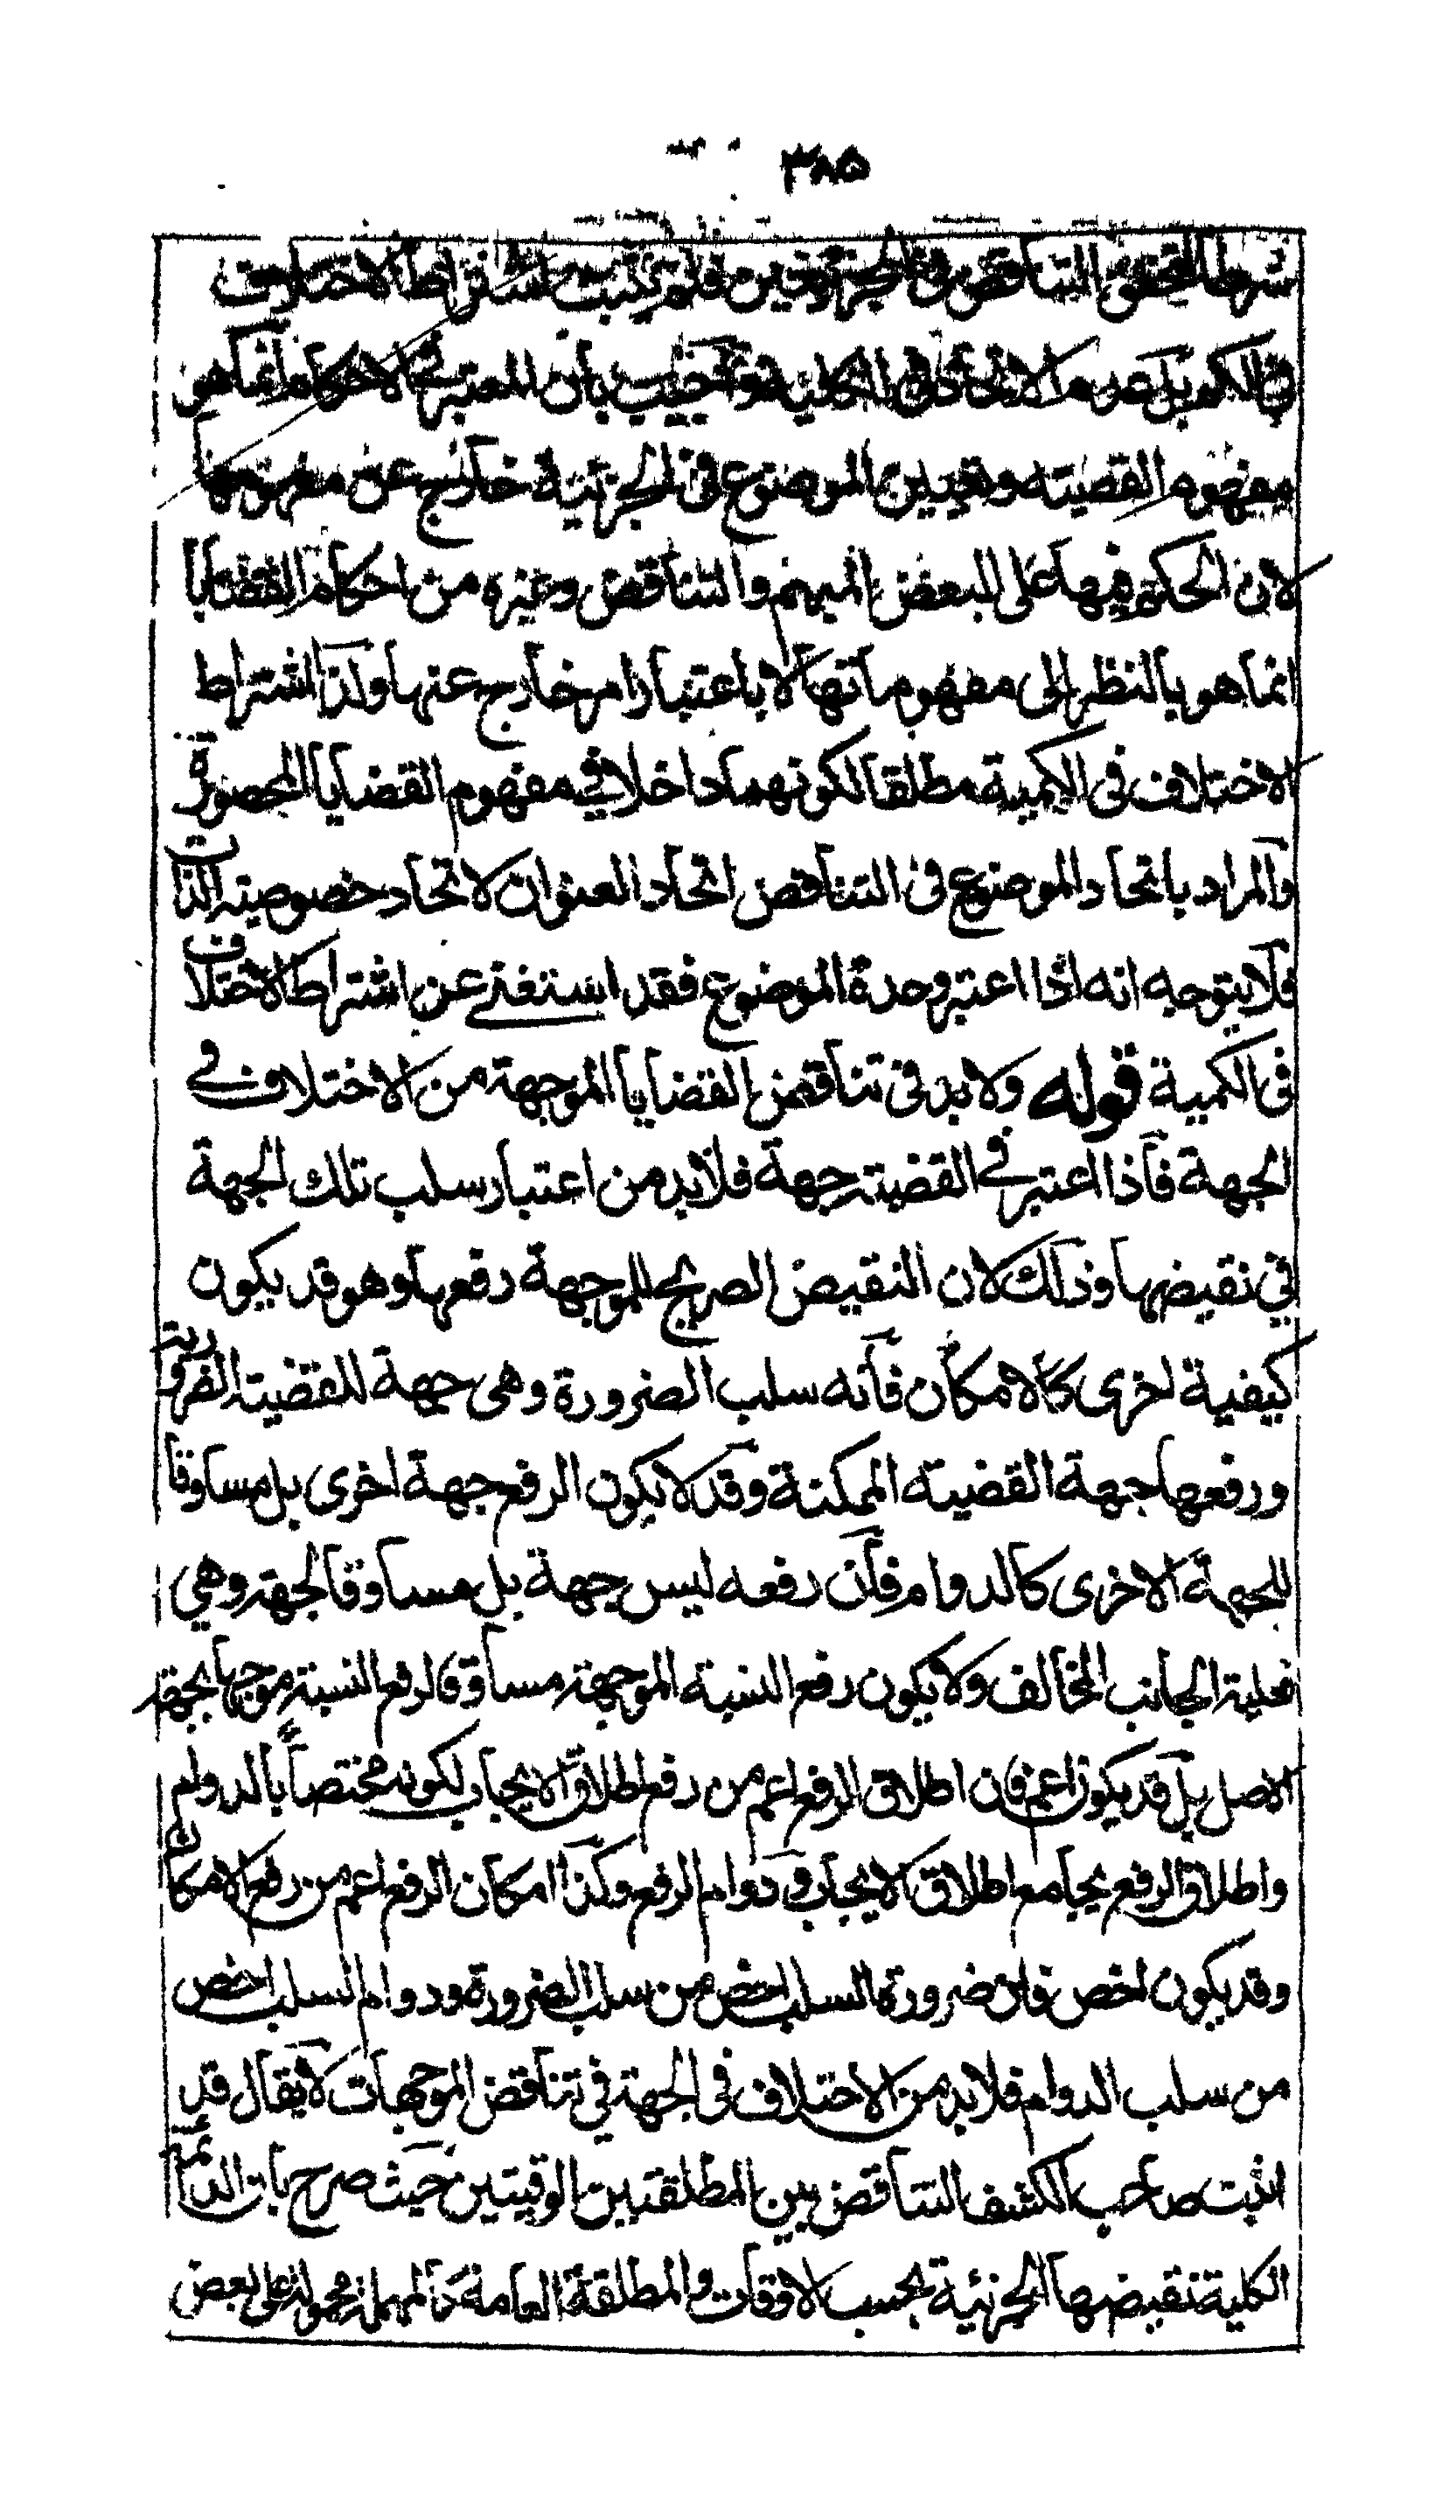 ٣٨٥
شرط لتحقق التناقض في الجزئيتين فلم يثبت اشتراط الاختلاف
في الكم بل عدم الاتحاد في الكلية وأجيب بأن المعتبر في الاحكام انما هو
مفهوم القضيته وتعيين الموضوع في الجزئية خارج عن مفهومها
لان الحكم فيها على البعض المبهم والتناقض وغيره من احكام القضايا
انما هو بالنظر الى مفهوماتها لا باعتبار امر خارج عنها ولذا اشتراط
الاختلاف في الكمية مطلقا لكونهما داخلا في مفهوم القضايا المحصورة
والمراد باتحاد الموضوع في التناقض اتحاد العنوان لا اتحاد خصوصيته الذات
فلا يتوجه انه اذا اعتبر وحدة الموضوع فقد استغنى عن اشتراط الاختلاف
في الكمية قوله ولا بد في تناقض القضايا الموجهة من الاختلاف في
الجهة فاذا اعتبر في القضيته جهة فلا بد من اعتبار سلب تلك الجهة
في نقيضها وذلك لان النقيض الصريح للموجهة رفعها وهو قد يكون
كيفية اخرى كالامكان فانه سلب الضرورة وهى جهة للقضيته الضرورية
ورفعها جهة القضيته الممكنة وقد لا يكون الرفع جهة اخرى بل مساوقا
للجهة الاخرى كالدوام فان رفعه ليس جهة بل مساوقا لجهة وهي
فعلية الجانب المخالف ولا يكون رفع النسبة الموجهة مساوقا لرفع النسبة موجها بجهة
الاصل بل قد يكون اعم فان اطلاق الرفع اعم من رفع اطلاق الايجاب لكونه مختصا بالدوام
واطلاق الرفع يجامع اطلاق الايجاب ودوام الرفع وكذا امكان الرفع اعم من رفع الامكان
وقد يكون اخص فان ضرورة السلب اخص من سلب الضرورة ودوام السلب اخص
من سلب الدوام فلا بد من الاختلاف في الجهة في تناقض الموجهات لا يقال قد
اثبت صاحب الكشف التناقض بين المطلقتين الوقتيتين حيث صرح بان الدائمة
الكلية نقيضها الجزئية بحسب الاوقات والمطلقة العامة كالمهملة محمولة على بعض